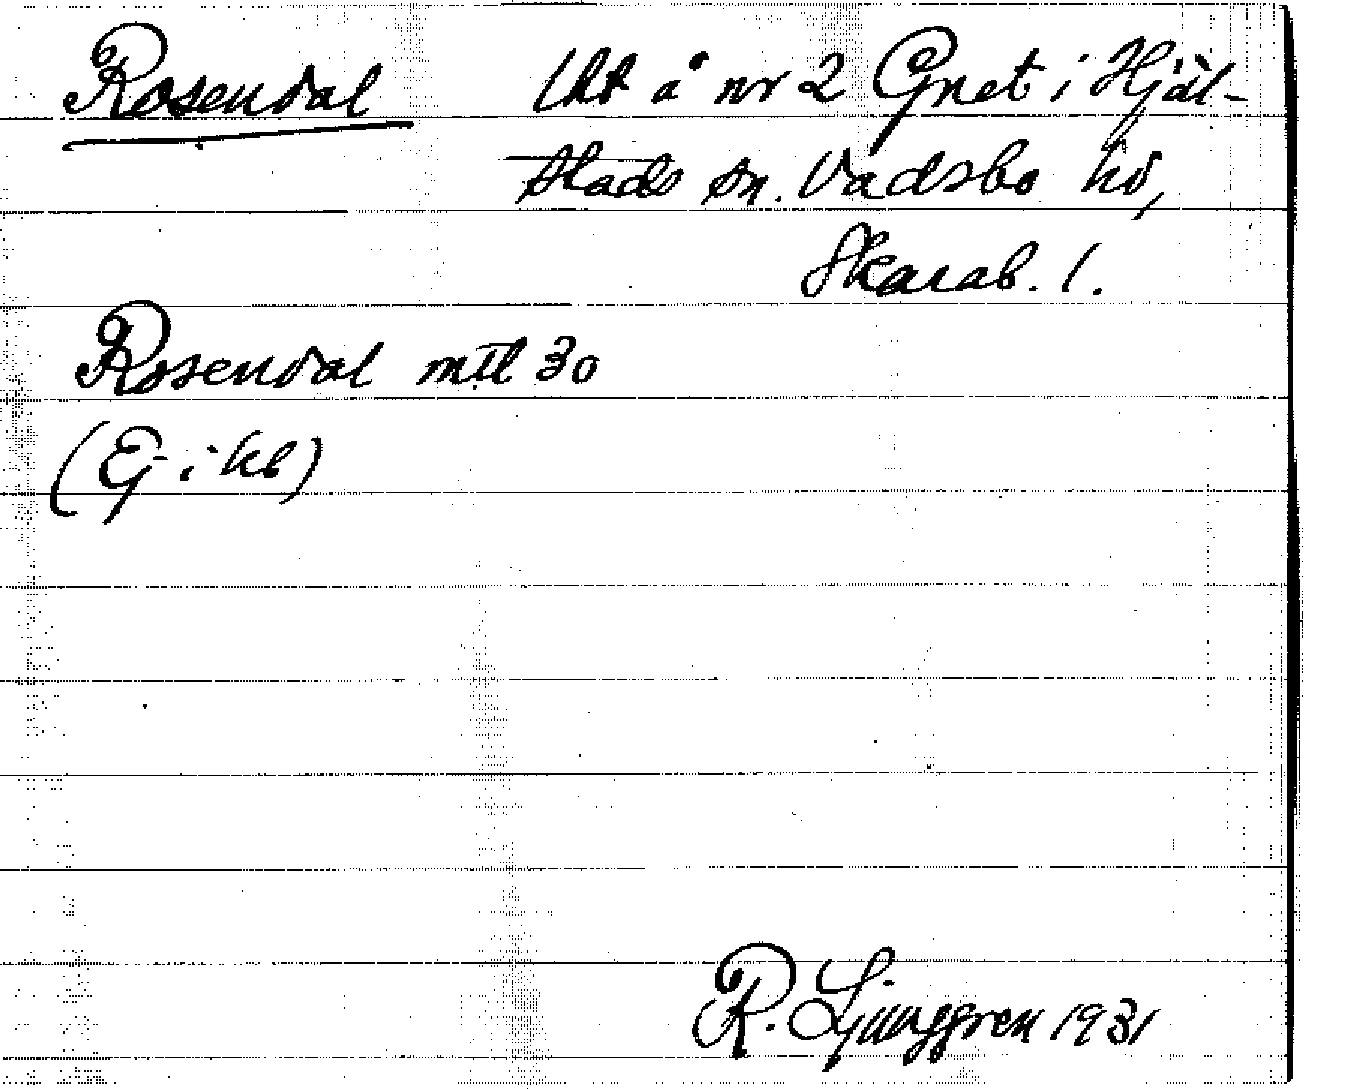 Rosendal Lht å nr 2 Gnet i Hjäl-
stads sn. Vadsbo hd,
Skarab. l.
Rosendal mtl 30
(Ej i kb)
R. Ljunggren 1931